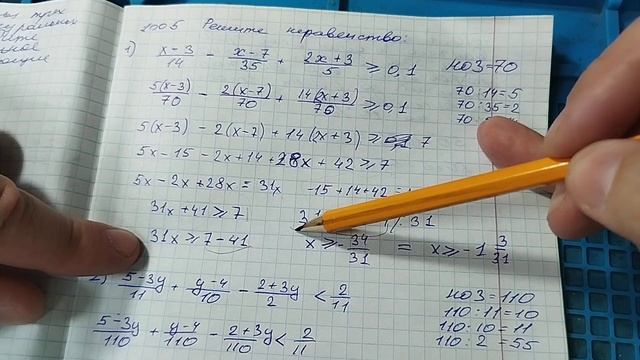 1005 Решите неравенство:
1) x-3/14 - x-7/35 + 2x+3/5 ⩾ 0,1
НОЗ=70
5(x-3)/70 - 2(x-7)/70 + 14(2x+3)/70 ⩾ 0,1
70:14=5
70:35=2
70
5(x-3) - 2(x-7) + 14(2x+3) ⩾ 7
5x-15-2x+14+28x+42⩾7
5x-2x+28x=31x -15+14+42=
31x+41⩾7
31
31x⩾7-41
x⩾-34/31 = x⩾-1 3/31
2) 5-3y/11 + y-4/10 - 2+3y/2 < 2/11
НОЗ=110
110:11=10
110:10=11
110:2=55
5-3y/110 + y-4/110 - 2+3y/110 < 2/11